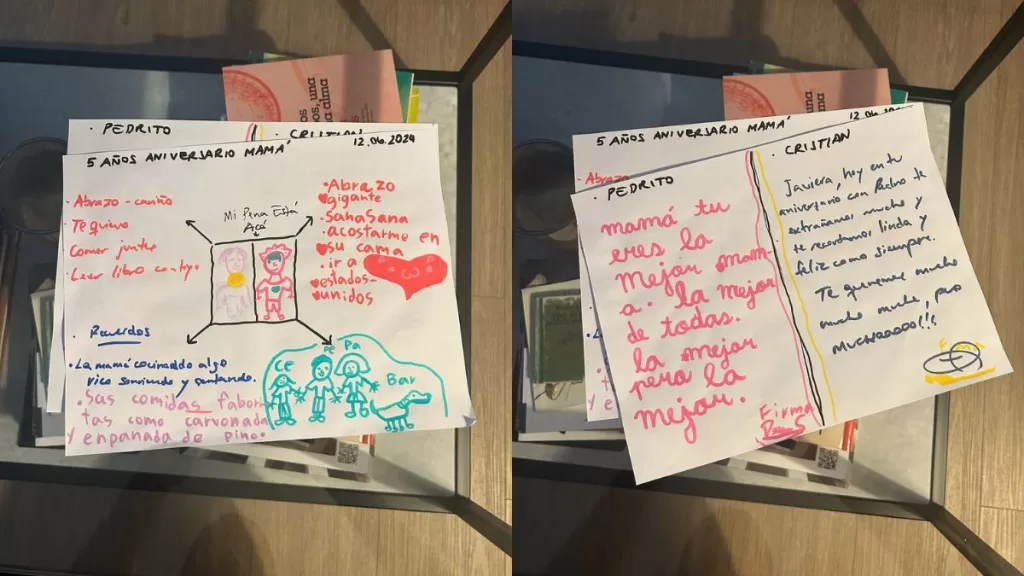 os, una
alma
· PEDRITO
· CRISTIAN
5 AÑOS ANIVERSARIO MAMÁ
12.06.2024
· Abrazo - cariño
· Te quiero
Comer juntos
· Leer libro
Mi Pena Está
Acá
· Abrazo
gigante
· SanaSana
· acostarme en
su cama
ir a
estados-
unidos
· Recuerdos
· La mamá cocinando algo
rico sonriendo y cantando.
· Sas comidas fabori
tas como carvonada
y empanada de pino.
Ce
Pe
Pa
Bar
alma
5 AÑOS ANIVERSARIO MAMÁ
Abrazo
· PEDRITO
mamá tu
eres la
mejor mam-
á. la mejor
de todas.
la mejor
pero la
mejor.
Firma
· CRISTIAN
Javiera, hoy en tu
aniversario con Pedro te
extrañamos mucho y
te recordamos linda y
feliz como siempre.
Te queremos mucho
mucho mucho, pero
MUCHOOOOO!!!